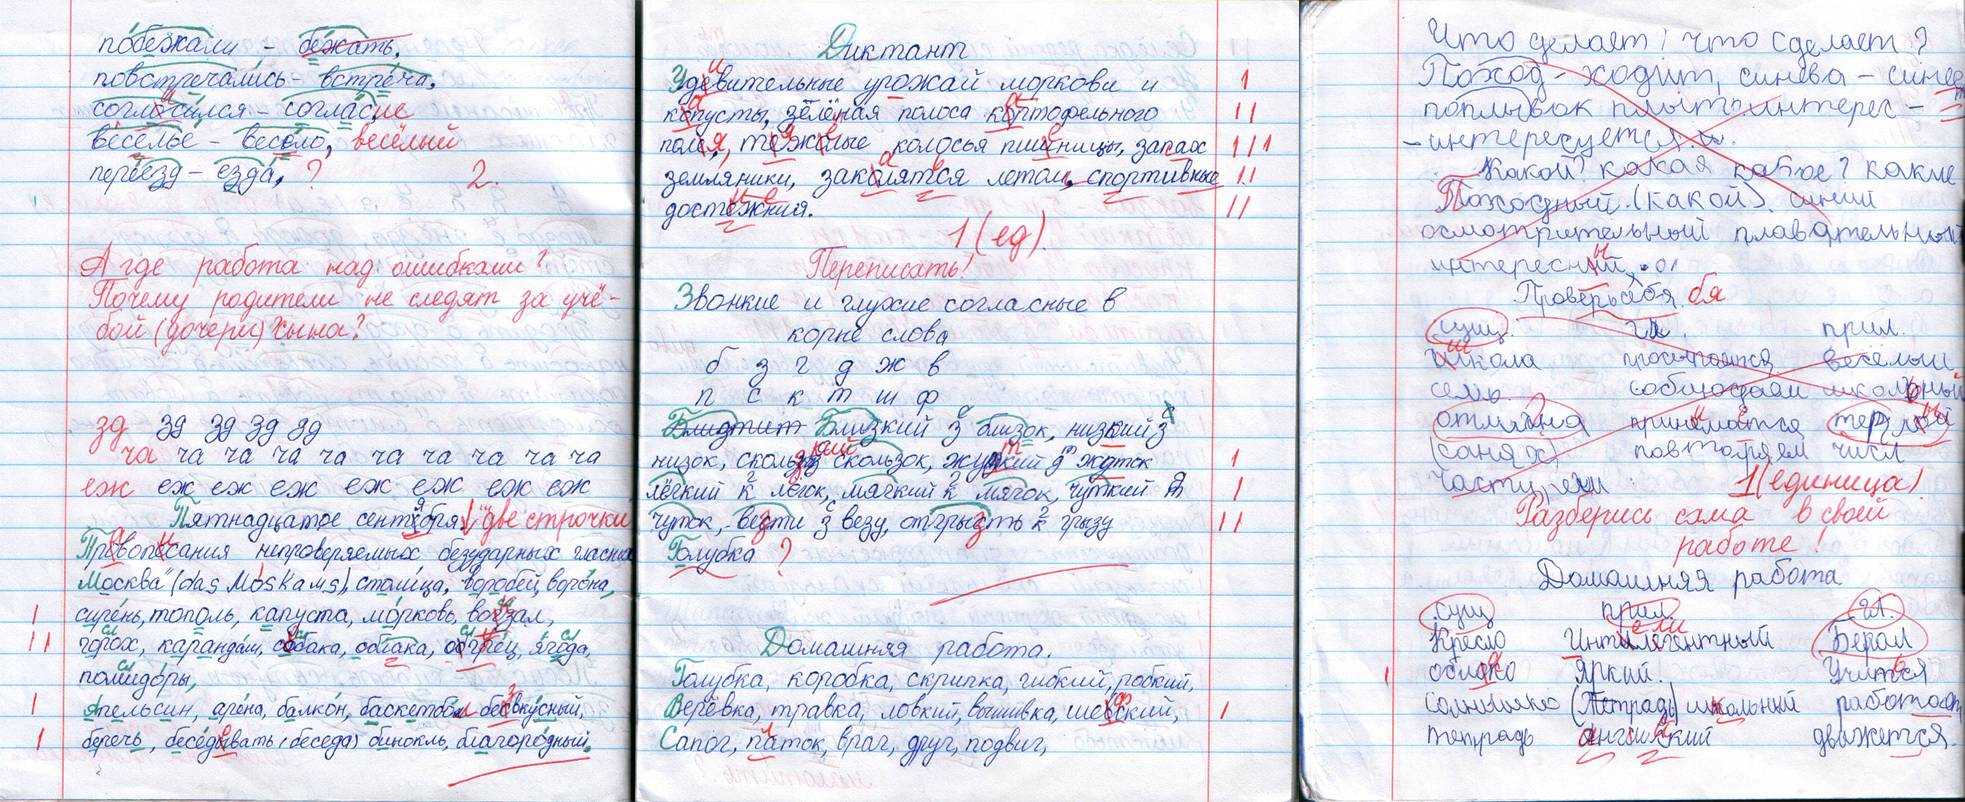 побежали - бежать,
повстречались - встреча,
согласился - согласие
веселье - весело, весёлый
переезд - езда, ? 2.
А где работа над ошибками?
Почему родители не следят за учё-
бой (дочери) сына?
зд зд зд зд зд
ча ча ча ча ча ча ча ча ча ча
еж еж еж еж еж еж еж еж
Пятнадцатое сентября. две строчки
Правописания непроверяемых безударных гласных
Москва (das Moskaus), столица, воробей, ворона,
сирень, тополь, капуста, морковь, вокзал,
горох, карандаш, собака, огурец, ягода,
помидоры,
Апельсин, арена, балкон, баскетбол, безвкусный,
беречь, беседовать (беседа) бинокль, благородный.
Диктант
Удевительные урожай моркови и
копусты, зелёная полоса кортофельного
поля, колосья пшеницы, запах
земляники, летом, спортивные
достежния.
1 (ед).
Переписать!
Звонкие и глухие согласные в
корне слова
б з г д ж в
п с к т ш ф
Близкий з близок, низкий з
низок, скользок, жуткий жуток
лёгкий к лёгок, мягкий к мягок, чуткий
чуток, везти з везу, отгрызть к грызу
Голубка ?
Домашняя работа.
Голубка, коробка, скрипка, гибкий, робкий,
Верёвка, травка, ловкий, вышивка,
Сапог, паток, врач, друг, подвиг,
Что делает? что сделает?
Поход - ходит, синева - синеет
поплывок плыть интерес -
- интересуется.
Какой? какая какое? какие
Походный (какой). синий
осмотрительный плавательный
интересный,
Проверь себя. бя
сущ. гл. прил.
школа просыпается весёлый
семь. соблюдаем школьный
принимается
(санях) повторяем числ
части речи 1 (единица).
Разберись сама в своей
работе!
Домашняя работа
сущ прил. гл.
Кресло Интилегентный Берал
облоко Яркий. Учится
солнышко (Тетрадь) школьный работает
тетрадь движется.